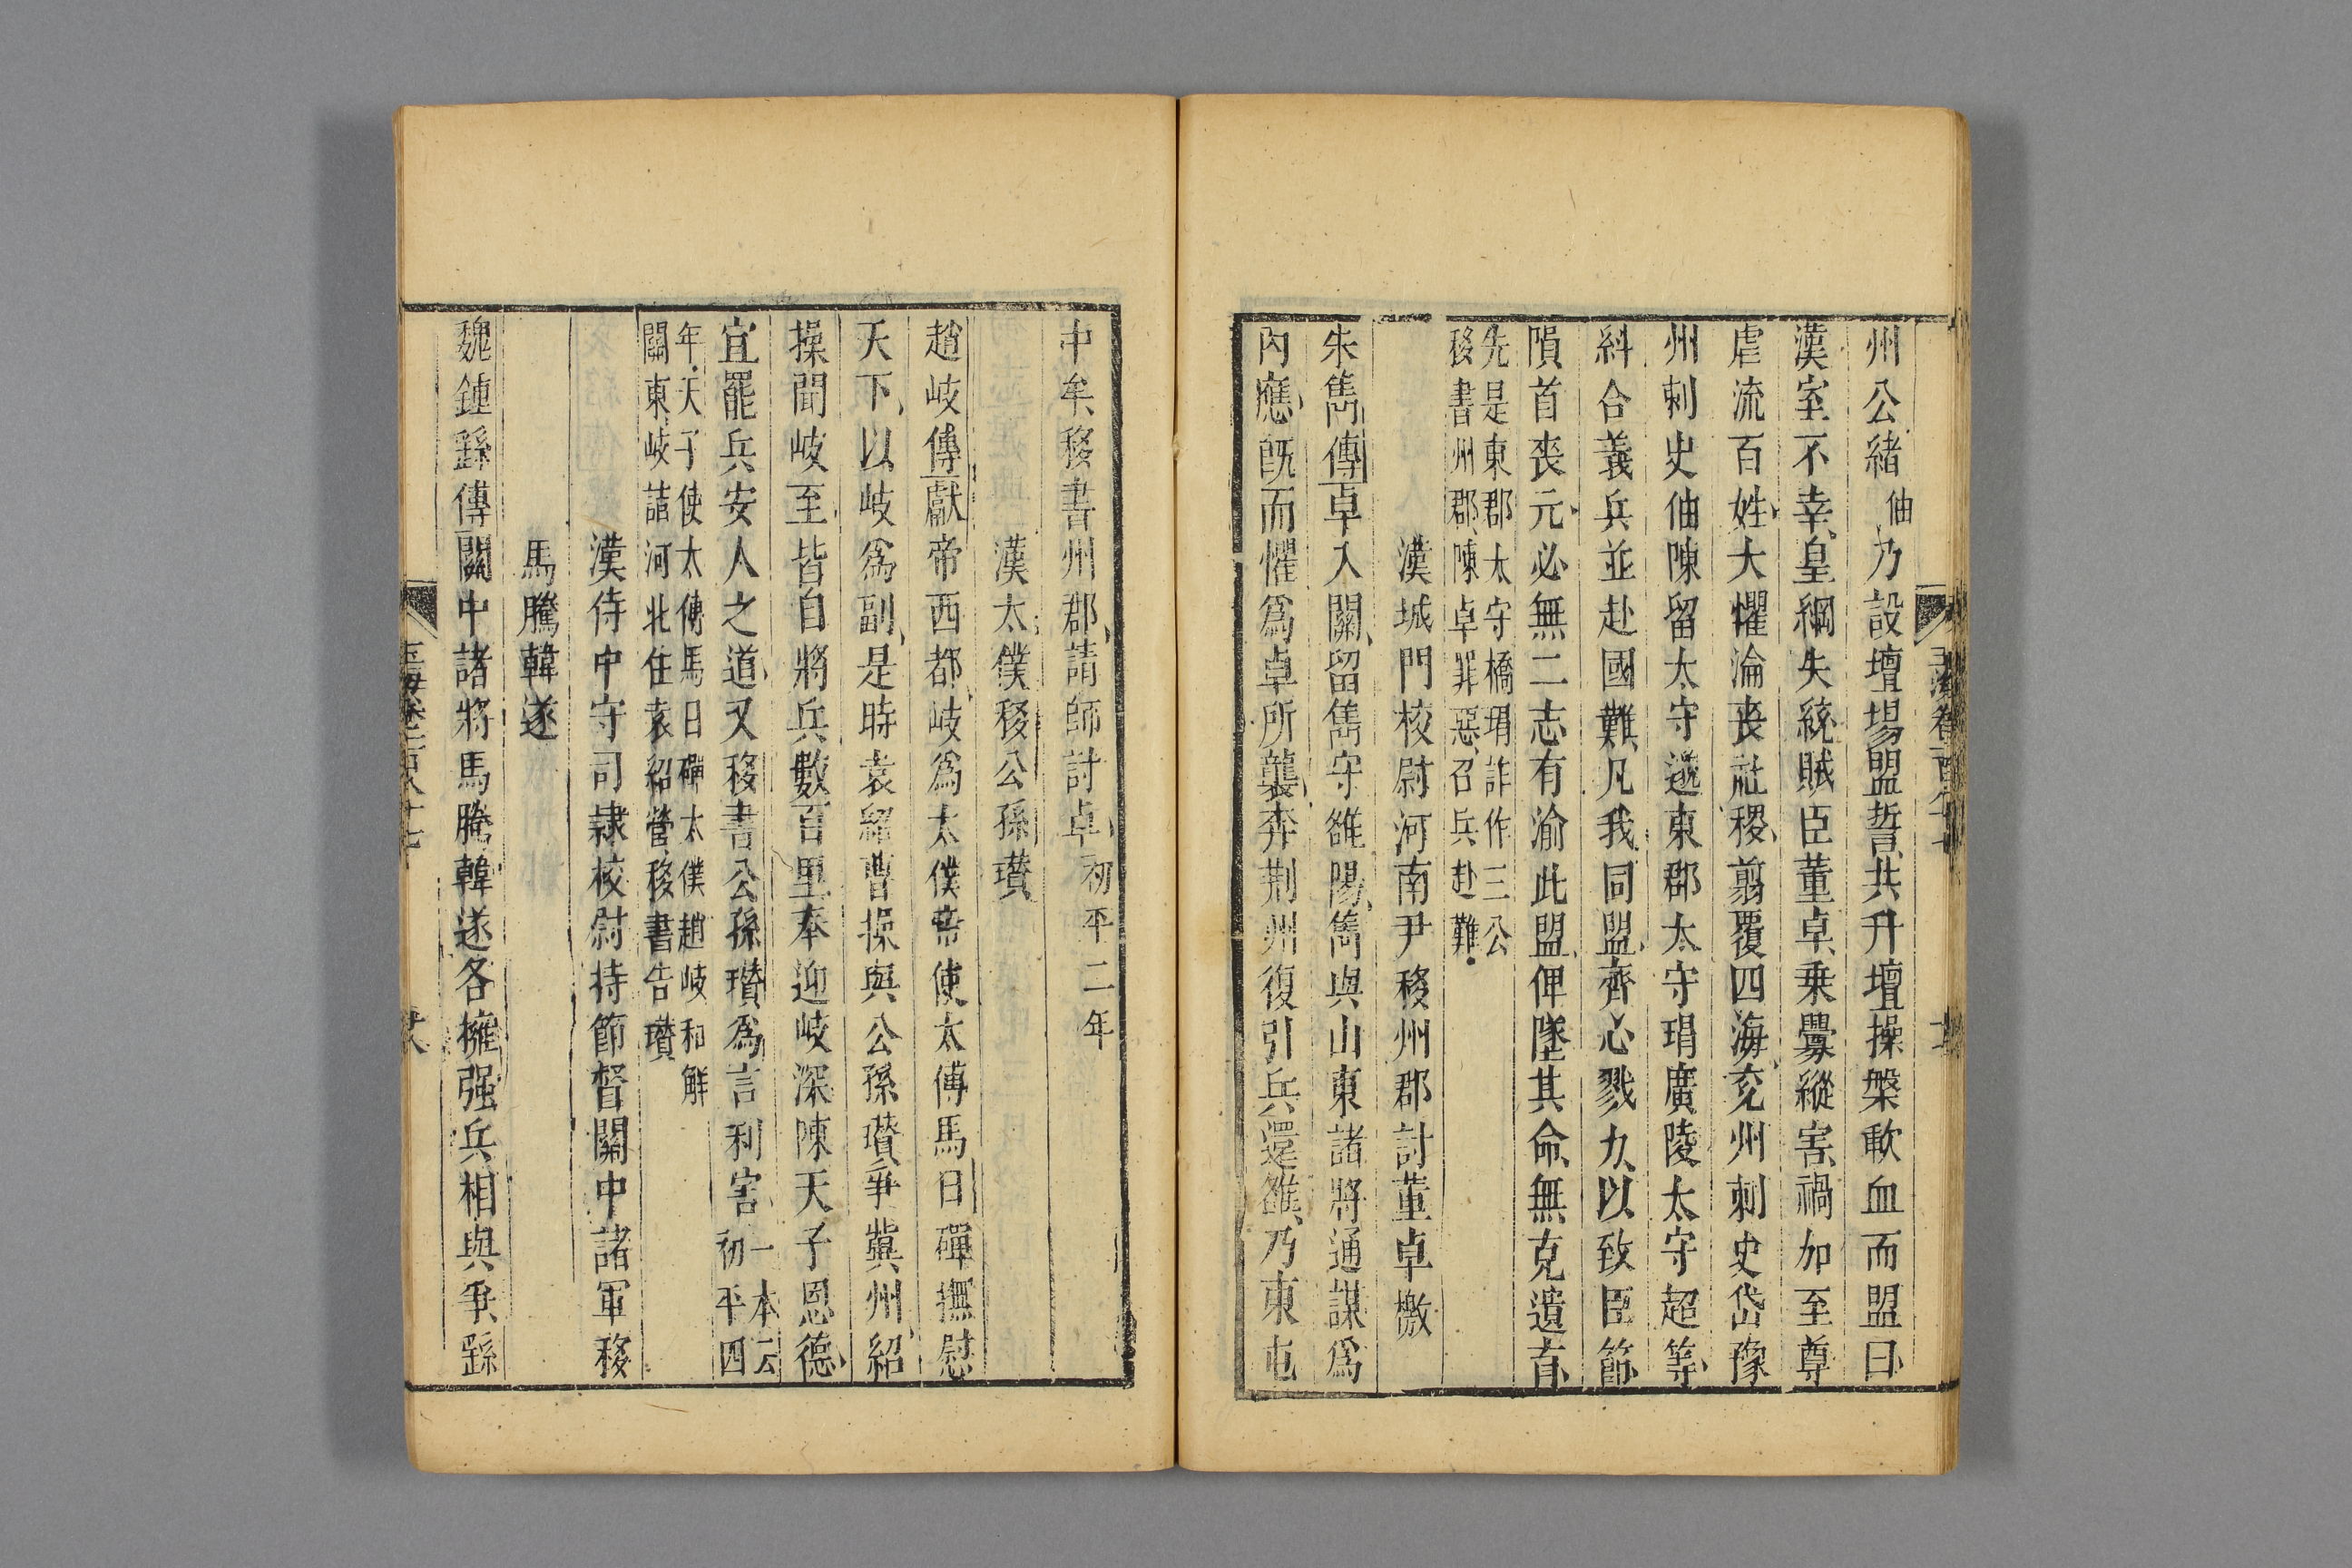 州公緒伷乃設壇場盟誓共升壇操槃歃血而盟曰
漢室不幸皇綱失統賊臣董卓乗釁縱害禍加至尊
虐流百姓大懼淪喪社稷翦覆四海兖州刺史岱豫
州刺史伷陳留太守邈東郡太守瑁廣陵太守超等
糾合義兵並赴國難凡我同盟齊心戮力以致臣節
隕首喪元必無二志有渝此盟俾墜其命無克遺育
先是東郡太守橋瑁詐作三公
移書州郡陳卓罪惡召兵赴難
漢城門校尉河南尹移州郡討董卓檄
朱雋傳卓入關留雋守雒陽雋與山東諸將通謀爲
内應旣而懼爲卓所襲奔荆州復引兵還雒乃東屯
中牟移書州郡請師討卓初平二年
漢太僕移公孫瓚
趙岐傳獻帝西都岐爲太僕帝使太傅馬日磾撫慰
天下以岐爲副是時袁紹曹操與公孫瓚爭冀州紹
操聞岐至皆自將兵數百里奉迎岐深陳天子恩德
宜罷兵安人之道又移書公孫瓚爲言利害一本云
初平四
年天子使太傅馬日磾太僕趙岐和解
關東岐詣河北住袁紹營移書告瓚
漢侍中守司隷校尉持節督關中諸軍移
馬騰韓遂
魏鍾繇傳關中諸將馬騰韓遂各擁强兵相與爭繇
玉海卷一百八十七